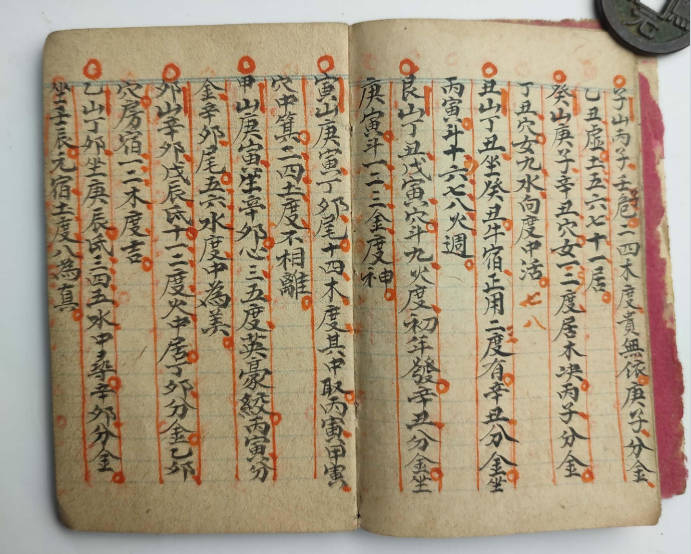 子山丙子壬危二四木度貴無依庚子分金
乙丑虛土五六七十一居
癸山庚子辛丑穴女一二度居木决丙子分金
丁丑穴女九水向度中活 七八
丑山丁丑坐癸丑牛宿正用二度有辛丑分金坐
丙寅斗十六七八火週
艮山丁丑戊寅穴斗九火度初年發辛丑分金坐
庚寅斗一二三金度神
寅山庚寅丁夘尾十四木度其中取丙寅甲寅
穴中箕二四土度不相離
甲山庚寅坐辛夘心三五度英豪絞丙寅分
金辛夘尾五六水度中為美
夘山辛夘戊辰氐十一二度火中居丁夘分金乙夘
穴房宿一二木度吉
乙山丁夘坐庚辰氐三四五水中尋辛夘分金
坐壬辰亢宿土度八為真
元